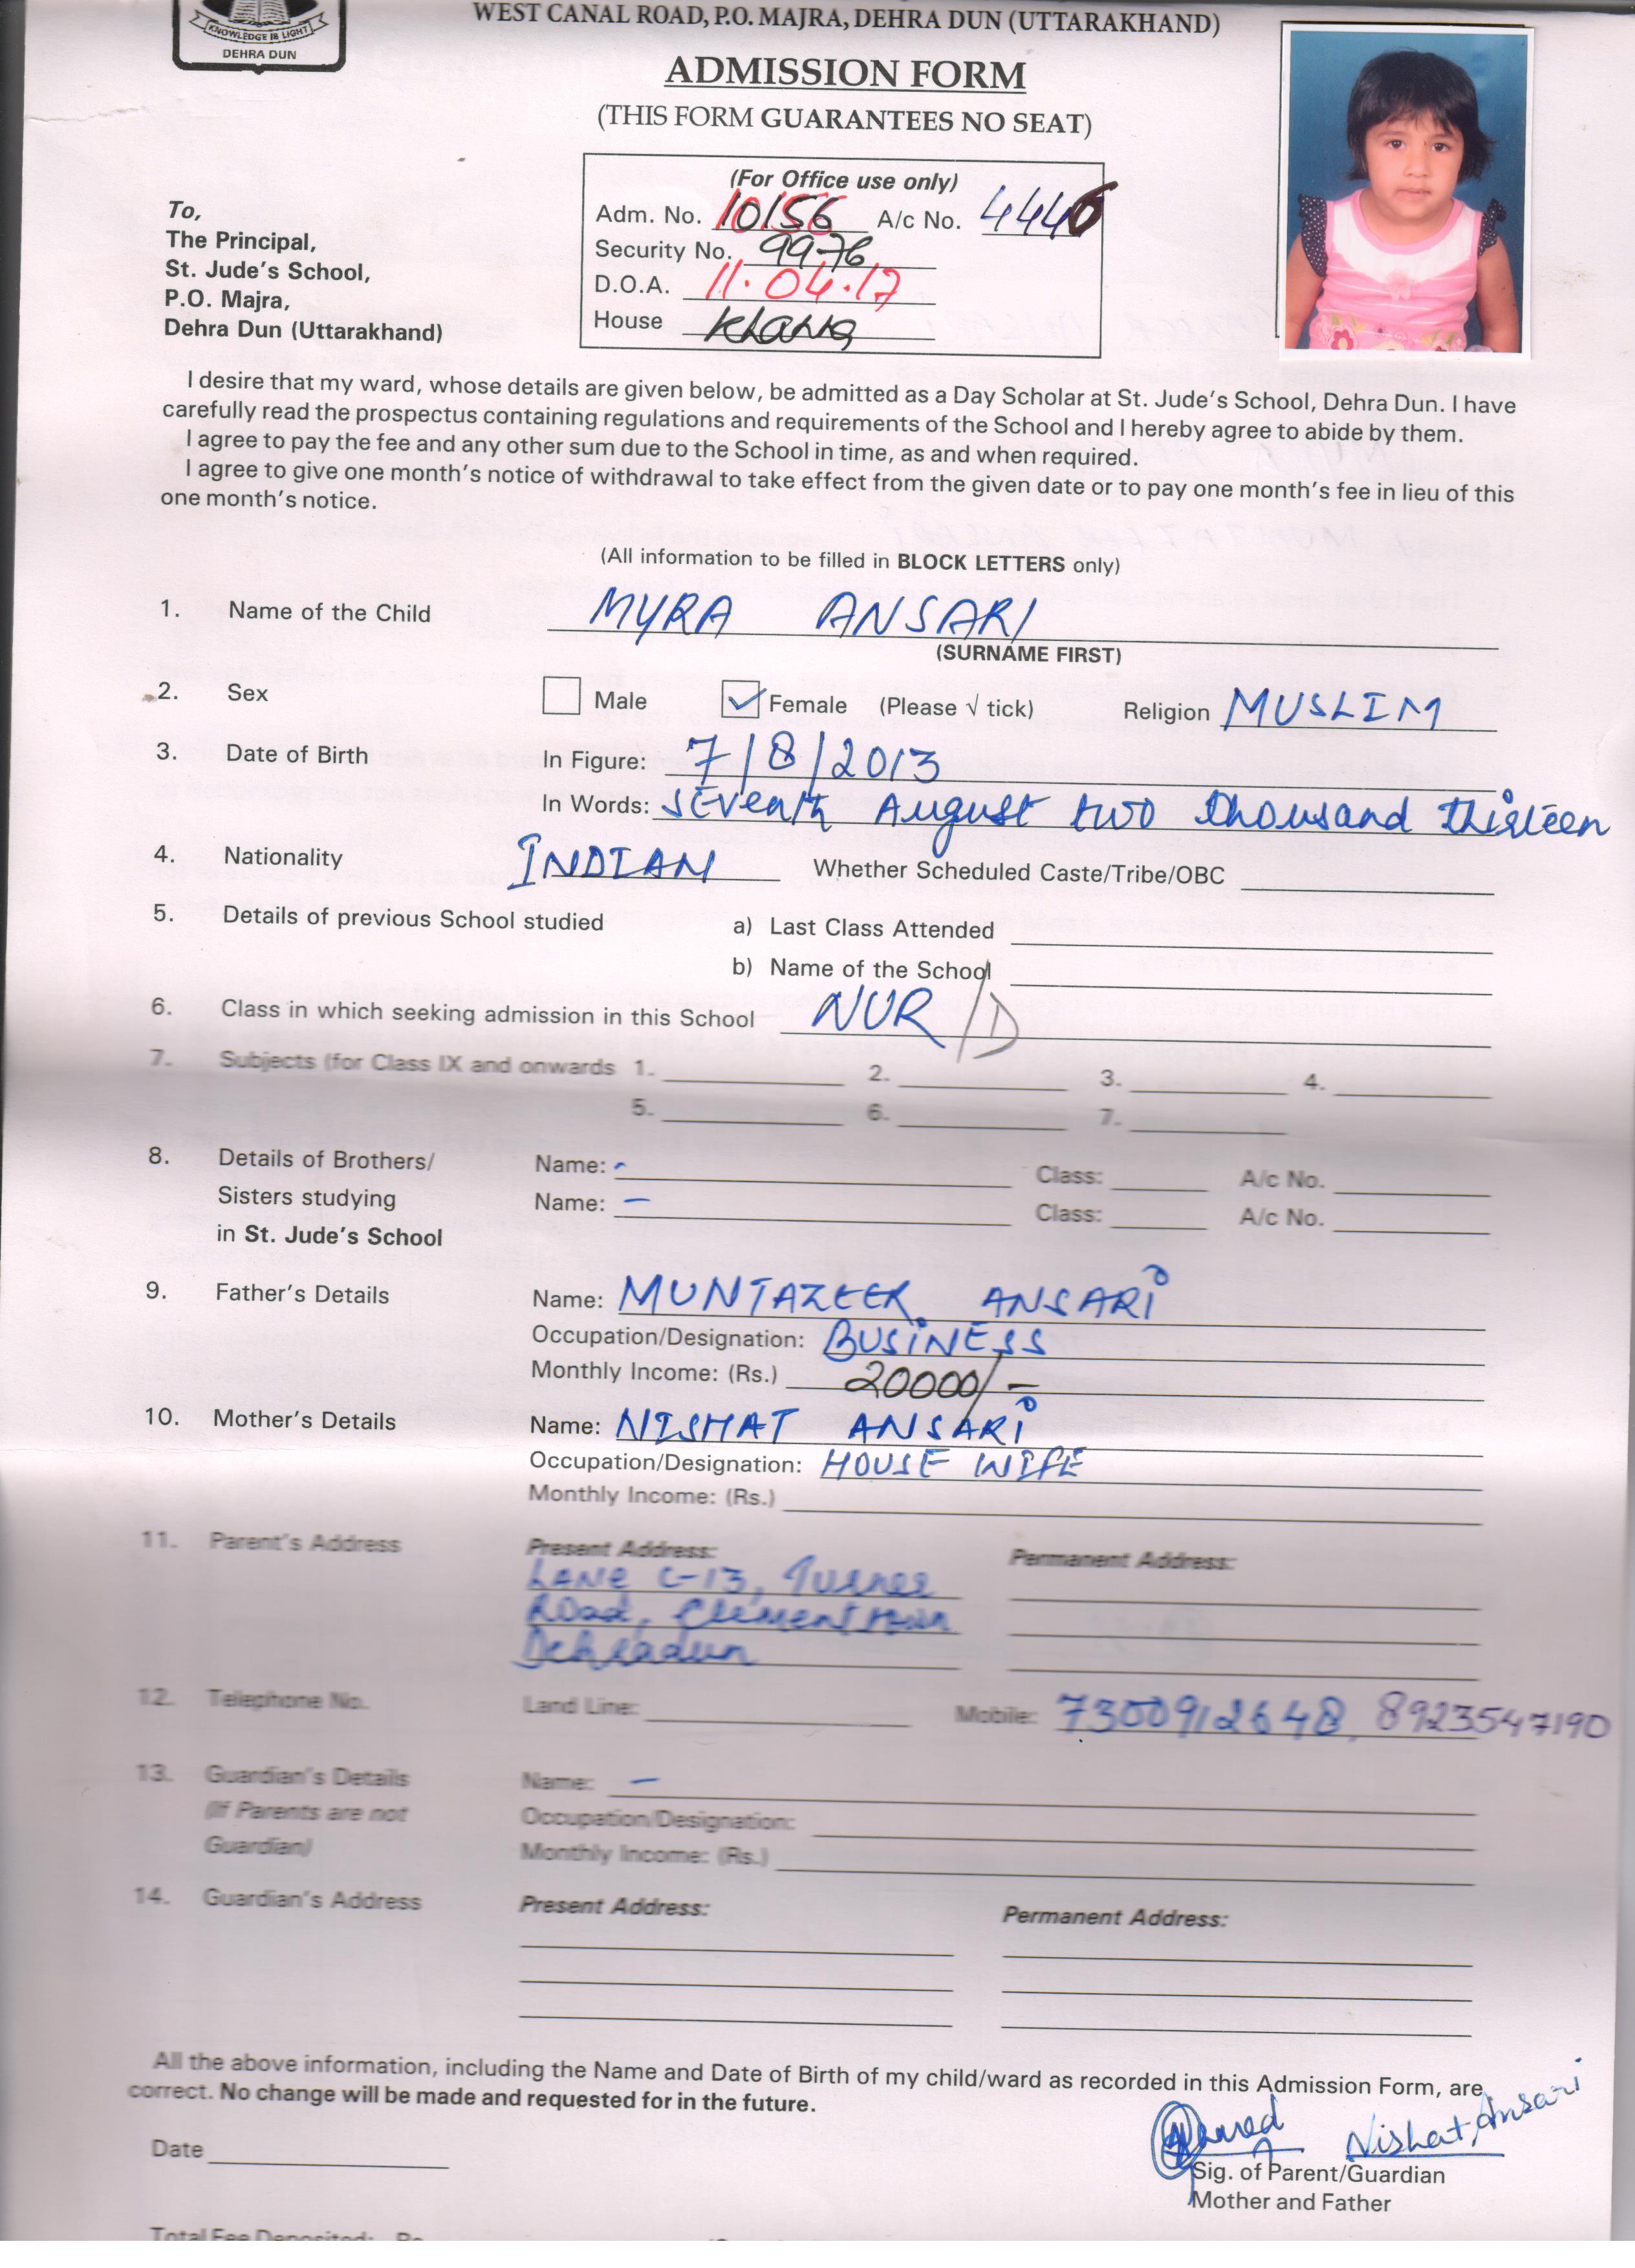 KNOWLEDGE IS LIGHT
DEHRA DUN
WEST CANAL ROAD, P.O. MAJRA, DEHRA DUN (UTTARAKHAND)
ADMISSION FORM
(THIS FORM GUARANTEES NO SEAT)
(For Office use only)
Adm. No. 10156 A/c No. 4446
Security No. 9976
D.O.A. 11.04.17
House
To,
The Principal,
St. Jude's School,
P.O. Majra,
Dehra Dun (Uttarakhand)
I desire that my ward, whose details are given below, be admitted as a Day Scholar at St. Jude's School, Dehra Dun. I have
carefully read the prospectus containing regulations and requirements of the School and I hereby agree to abide by them.
I agree to pay the fee and any other sum due to the School in time, as and when required.
I agree to give one month's notice of withdrawal to take effect from the given date or to pay one month's fee in lieu of this
one month's notice.
(All information to be filled in BLOCK LETTERS only)
1. Name of the Child MYRA ANSARI
(SURNAME FIRST)
2. Sex Male ✓ Female (Please √ tick) Religion MUSLIM
3. Date of Birth In Figure: 7/8/2013
In Words: SEVenth August two thousand thirteen
4. Nationality INDIAN Whether Scheduled Caste/Tribe/OBC
5. Details of previous School studied a) Last Class Attended
b) Name of the School
6. Class in which seeking admission in this School NUR/D
7. Subjects (for Class IX and onwards 1. 2. 3. 4.
5. 6. 7.
8. Details of Brothers/ Name: - Class: A/c No.
Sisters studying Name: - Class: A/c No.
in St. Jude's School
9. Father's Details Name: MUNTAZEER ANSARI
Occupation/Designation: BUSINESS
Monthly Income: (Rs.) 20000/-
10. Mother's Details Name: NISHAT ANSARI
Occupation/Designation: HOUSE WIFE
Monthly Income: (Rs.)
11. Parent's Address Present Address: Permanent Address:
LANE C-13, Turner
Road, Clement town
Dehradun
12. Telephone No. Land Line: Mobile: 7300912648, 8923547190
13. Guardian's Details Name: -
(If Parents are not Occupation/Designation:
Guardian) Monthly Income: (Rs.)
14. Guardian's Address Present Address: Permanent Address:
All the above information, including the Name and Date of Birth of my child/ward as recorded in this Admission Form, are
correct. No change will be made and requested for in the future.
Nishat Ansari
Date
Sig. of Parent/Guardian
Mother and Father
Total Fee Deposited: Rs.